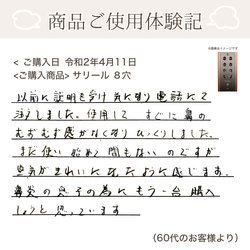 商品ご使用体験記
※使用前イメージ
< ご購入日 令和2年4月11日
<ご購入商品> サリール 8穴
以前に説明を受け気になり電話にて
注文しました。使用して すぐに鼻の
むずむず感がなくなりびっくりしました。
まだ使い始めて間もないのですが
空気がきれいになったように感じます。
鼻炎の息子の為にもう一台購入
しようと思っています
(60代のお客様より)